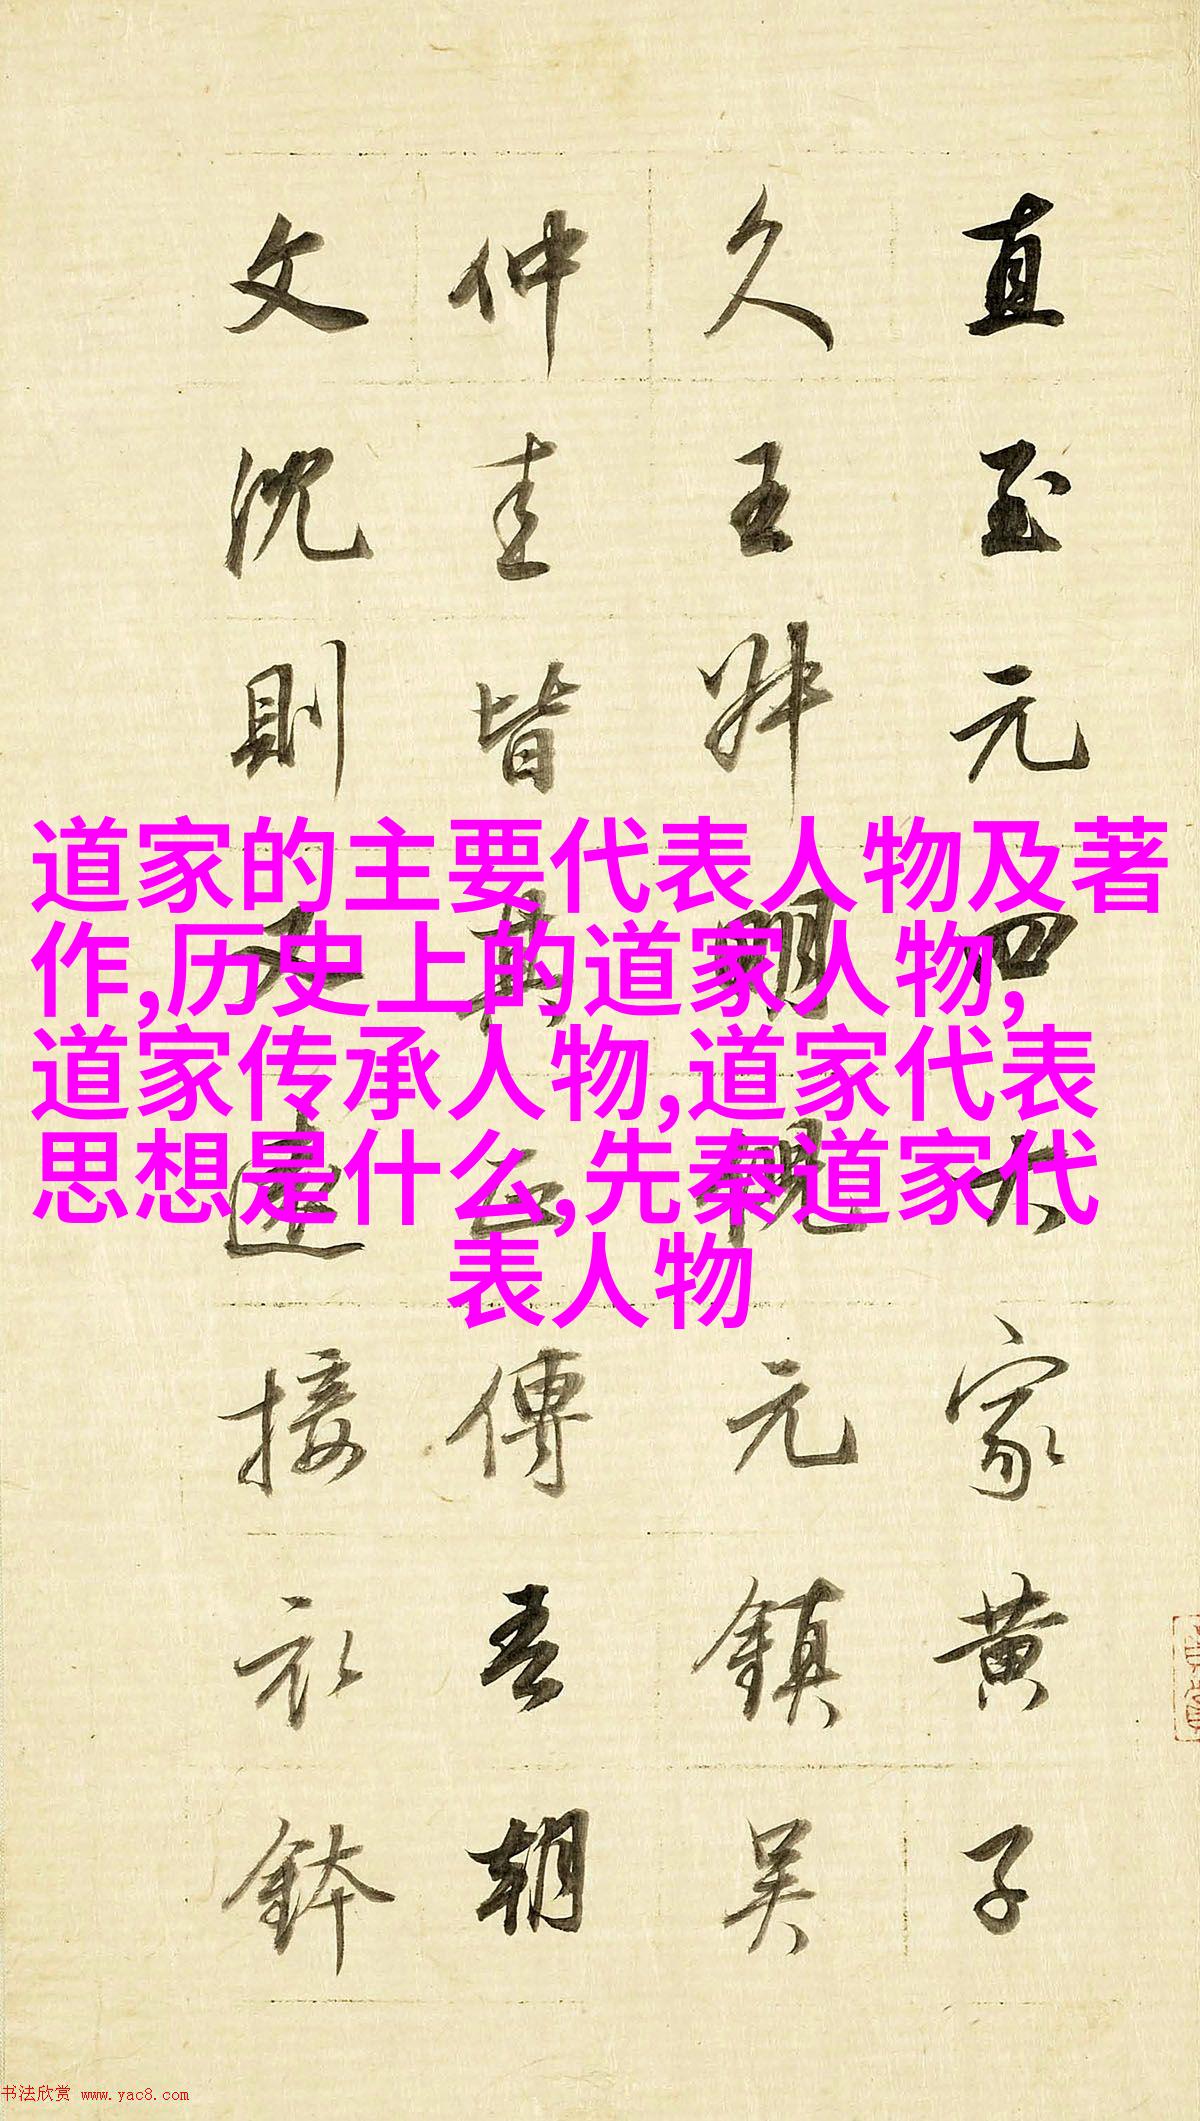 道家的主要代表人物及著
作,历史上的道家人物,
道家传承人物,道家代表
思想是什么,先秦道家代
表人物
直至元四大家黄子
久王叔明倪元鎮吴
仲圭皆其正傳吾朝
文沈則又遠接衣鉢
书法欣赏 www.yac8.com